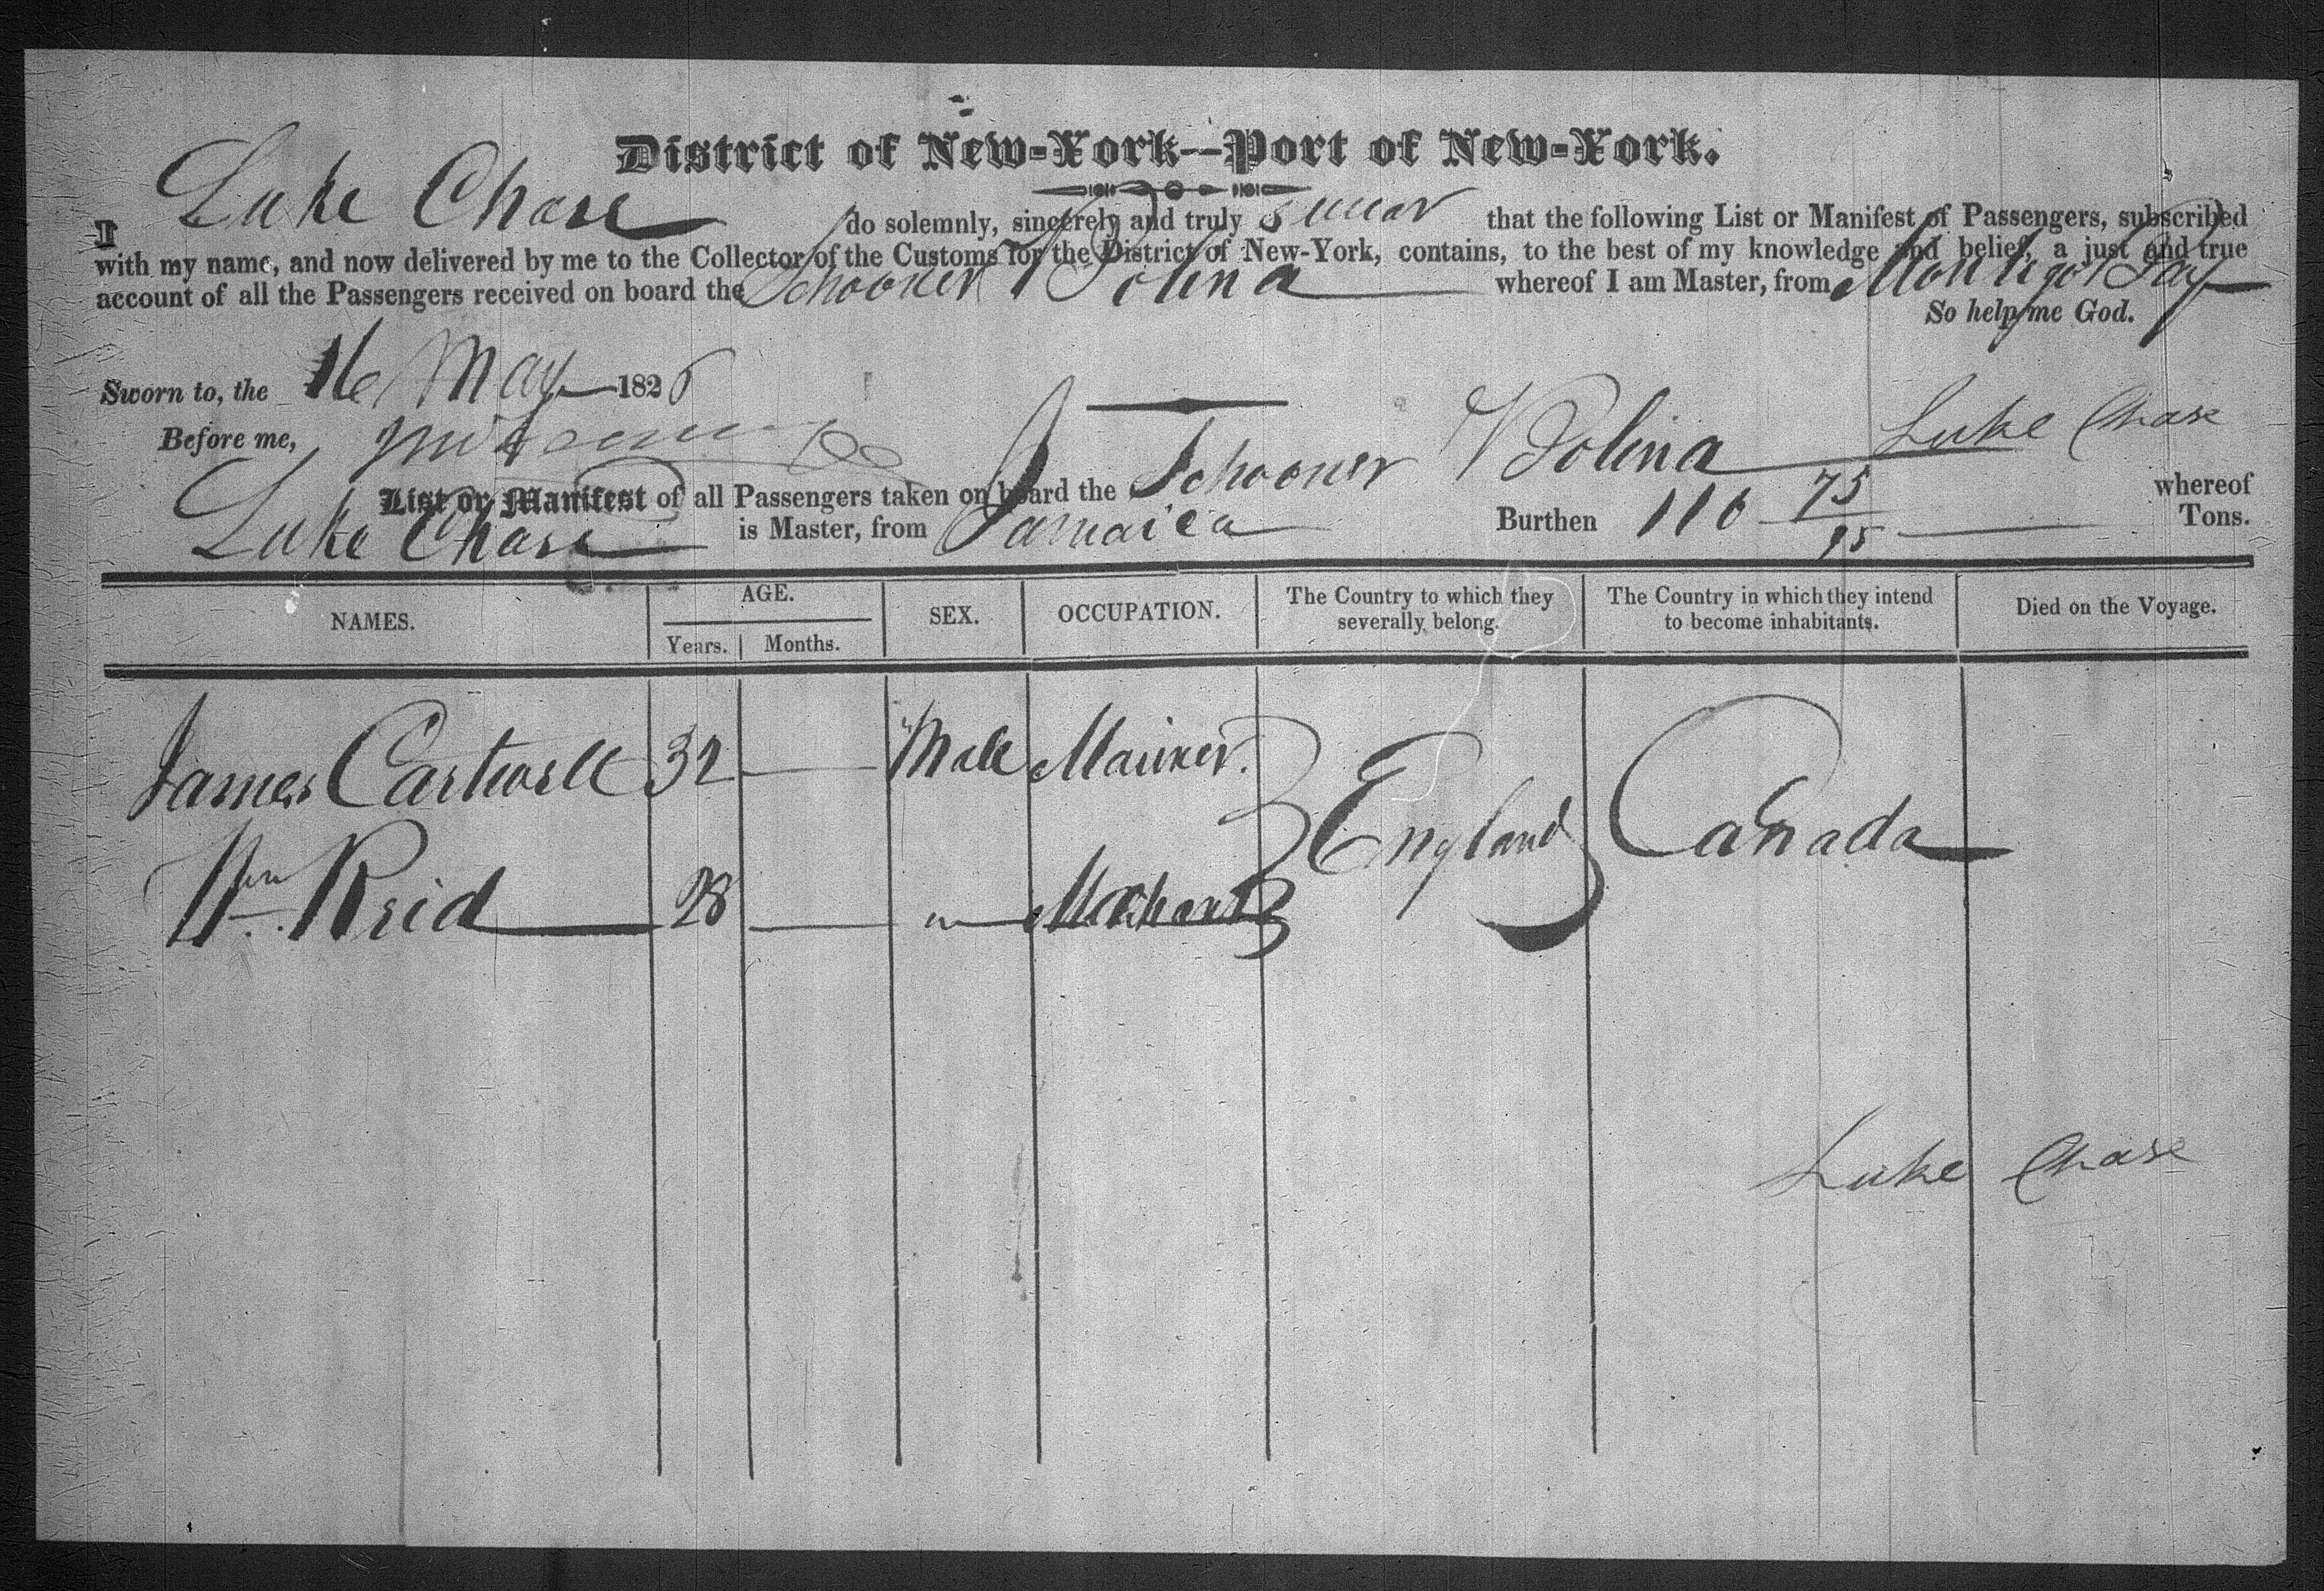 District of New-York—Port of New-York.
I Luke Chase do solemnly, sincerely and truly swear that the following List or Manifest of Passengers, subscribed
with my name, and now delivered by me to the Collector of the Customs for the District of New-York, contains, to the best of my knowledge and belief, a just and true
account of all the Passengers received on board the Schooner whereof I am Master, from Montego Bay
So help me God.
Sworn to, the 16 May 1826
Luke Chase
Before me,
List or Manifest of all Passengers taken on board the Schooner whereof
Luke Chase is Master, from Jamaica Burthen 116 75/95 Tons.
NAMES. AGE. SEX. OCCUPATION. The Country to which they severally belong. The Country in which they intend to become inhabitants. Died on the Voyage.
Years. Months.
James Cartwell 32 Male Mariner. England Canada
Wm Reid 28 " Merchant
Luke Chase